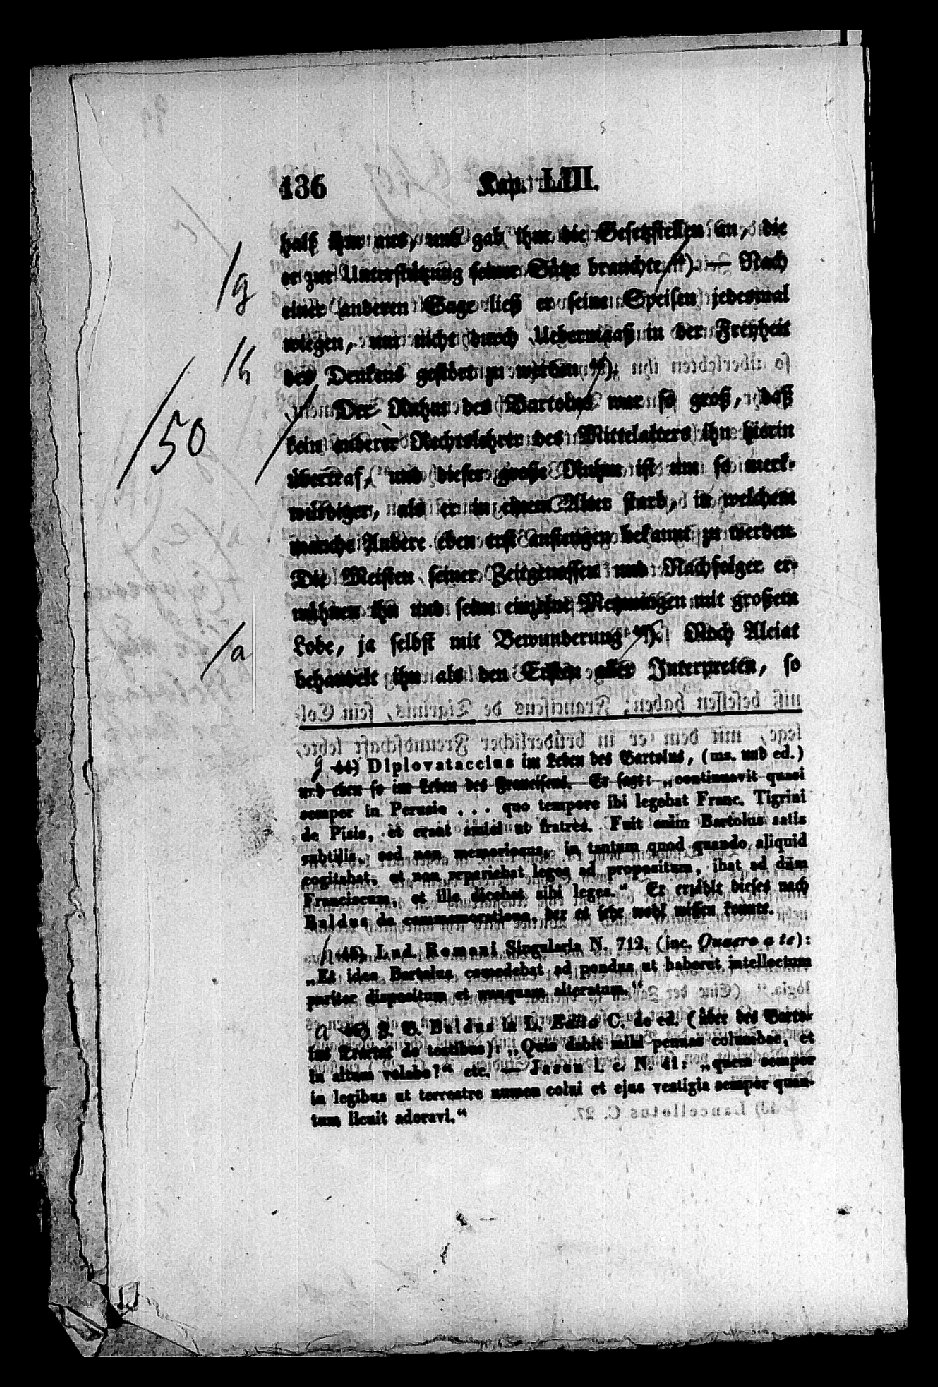 136 Kap. LIII.
half ihm aus, und gab ihm die Gesetzstellen an, die
er zur Unterstützung seiner Sätze brauchte 44). — Nach
/g
einer anderen Sage ließ er seine Speisen jedesmal
wiegen, um nicht durch Uebermaaß in der Freyheit
/h
des Denkens gestört zu werden 45).
/50
Der Ruhm des Bartolus war so groß, daß
kein anderer Rechtslehrer des Mittelalters ihn hierin
übertraf, und dieser große Ruhm ist um so merk-
würdiger, als er in einem Alter starb, in welchem
manche Andere eben erst anfangen bekannt zu werden.
Die Meisten seiner Zeitgenossen und Nachfolger er-
wähnen ihn und seine einzelne Meynungen mit großem
Lobe, ja selbst mit Bewunderung 46). Noch Alciat
/a
behandelt ihn als den Ersten aller Interpreten, so
g 44) Diplovataccius im Leben des Bartolus, (ms. und ed.)
und eben so im Leben des Franciscus. Er sagt: „continuavit quasi
semper in Perusio . . . quo tempore ibi legebat Franc. Tigrini
de Pisis, et erant amici ut fratres. Fuit enim Bartolus satis
subtilis, sed non memoriosus, in tantum quod quando aliquid
cogitabat, et non reperiebat leges ad propositum, ibat ad dum
Franciscum, et ille dicebat sibi leges.“ Er erzählt dieses nach
Baldus de commemoratione, der es sehr wohl wissen konnte.
h 45) Lud. Romani Singularia N. 712. (inc. Quaero a te):
„Et ideo Bartolus comedebat ad pondus ut haberet intellectum
pariter dispositum et nunquam alteratum.“
a 46) Z. B. Baldus in L. Edita C. de ed. (über des Barto-
lus Tractat de testibus): „Quis dabit mihi pennas columbae, et
in altum volabo?“ etc. — Jason l. c. N. 41: „quem semper
in legibus ut terrestre numen colui et ejus vestigia semper quan-
tum licuit adoravi.“